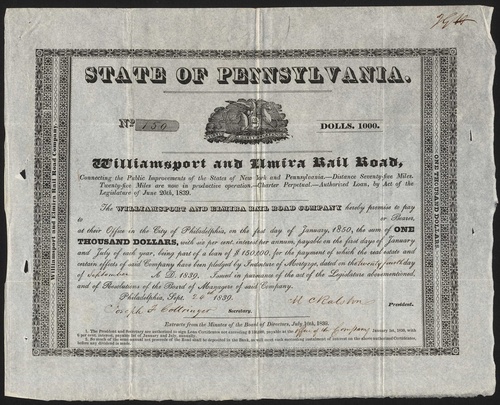 STATE OF PENNSYLVANIA.
No 150
DOLLS. 1000.
Williamsport and Elmira Rail Road,
Connecting the Public Improvements of the States of New York and Pennsylvania.—Distance Seventy-five Miles.
Twenty-five Miles are now in productive operation.—Charter Perpetual.—Authorized Loan, by Act of the
Legislature of June 20th, 1839.
The WILLIAMSPORT AND ELMIRA RAIL ROAD COMPANY hereby promise to pay
to or Bearer,
at their Office in the City of Philadelphia, on the first day of January, 1850, the sum of ONE
THOUSAND DOLLARS, with six per cent. interest per annum, payable on the first days of January
and July of each year, being part of a loan of $150,000, for the payment of which the real estate and
certain effects of said Company have been pledged by Indenture of Mortgage, dated on the twenty ninth day
of September A. D. 1839. Issued in pursuance of the act of the Legislature abovementioned,
and of Resolutions of the Board of Managers of said Company.
Philadelphia, Sept. 20th 1839.
President.
Joseph F. Cottringer Secretary.
Extracts from the Minutes of the Board of Directors, July 10th, 1839.
1. The President and Secretary are authorized to sign Loan Certificates, amounting $ payable at the office of the Company January 1st, 1850, with
6 per cent. interest, payable 1st of January and July, annually.
Williamsport and Elmira Rail Road Company.
ONE THOUSAND DOLLARS.